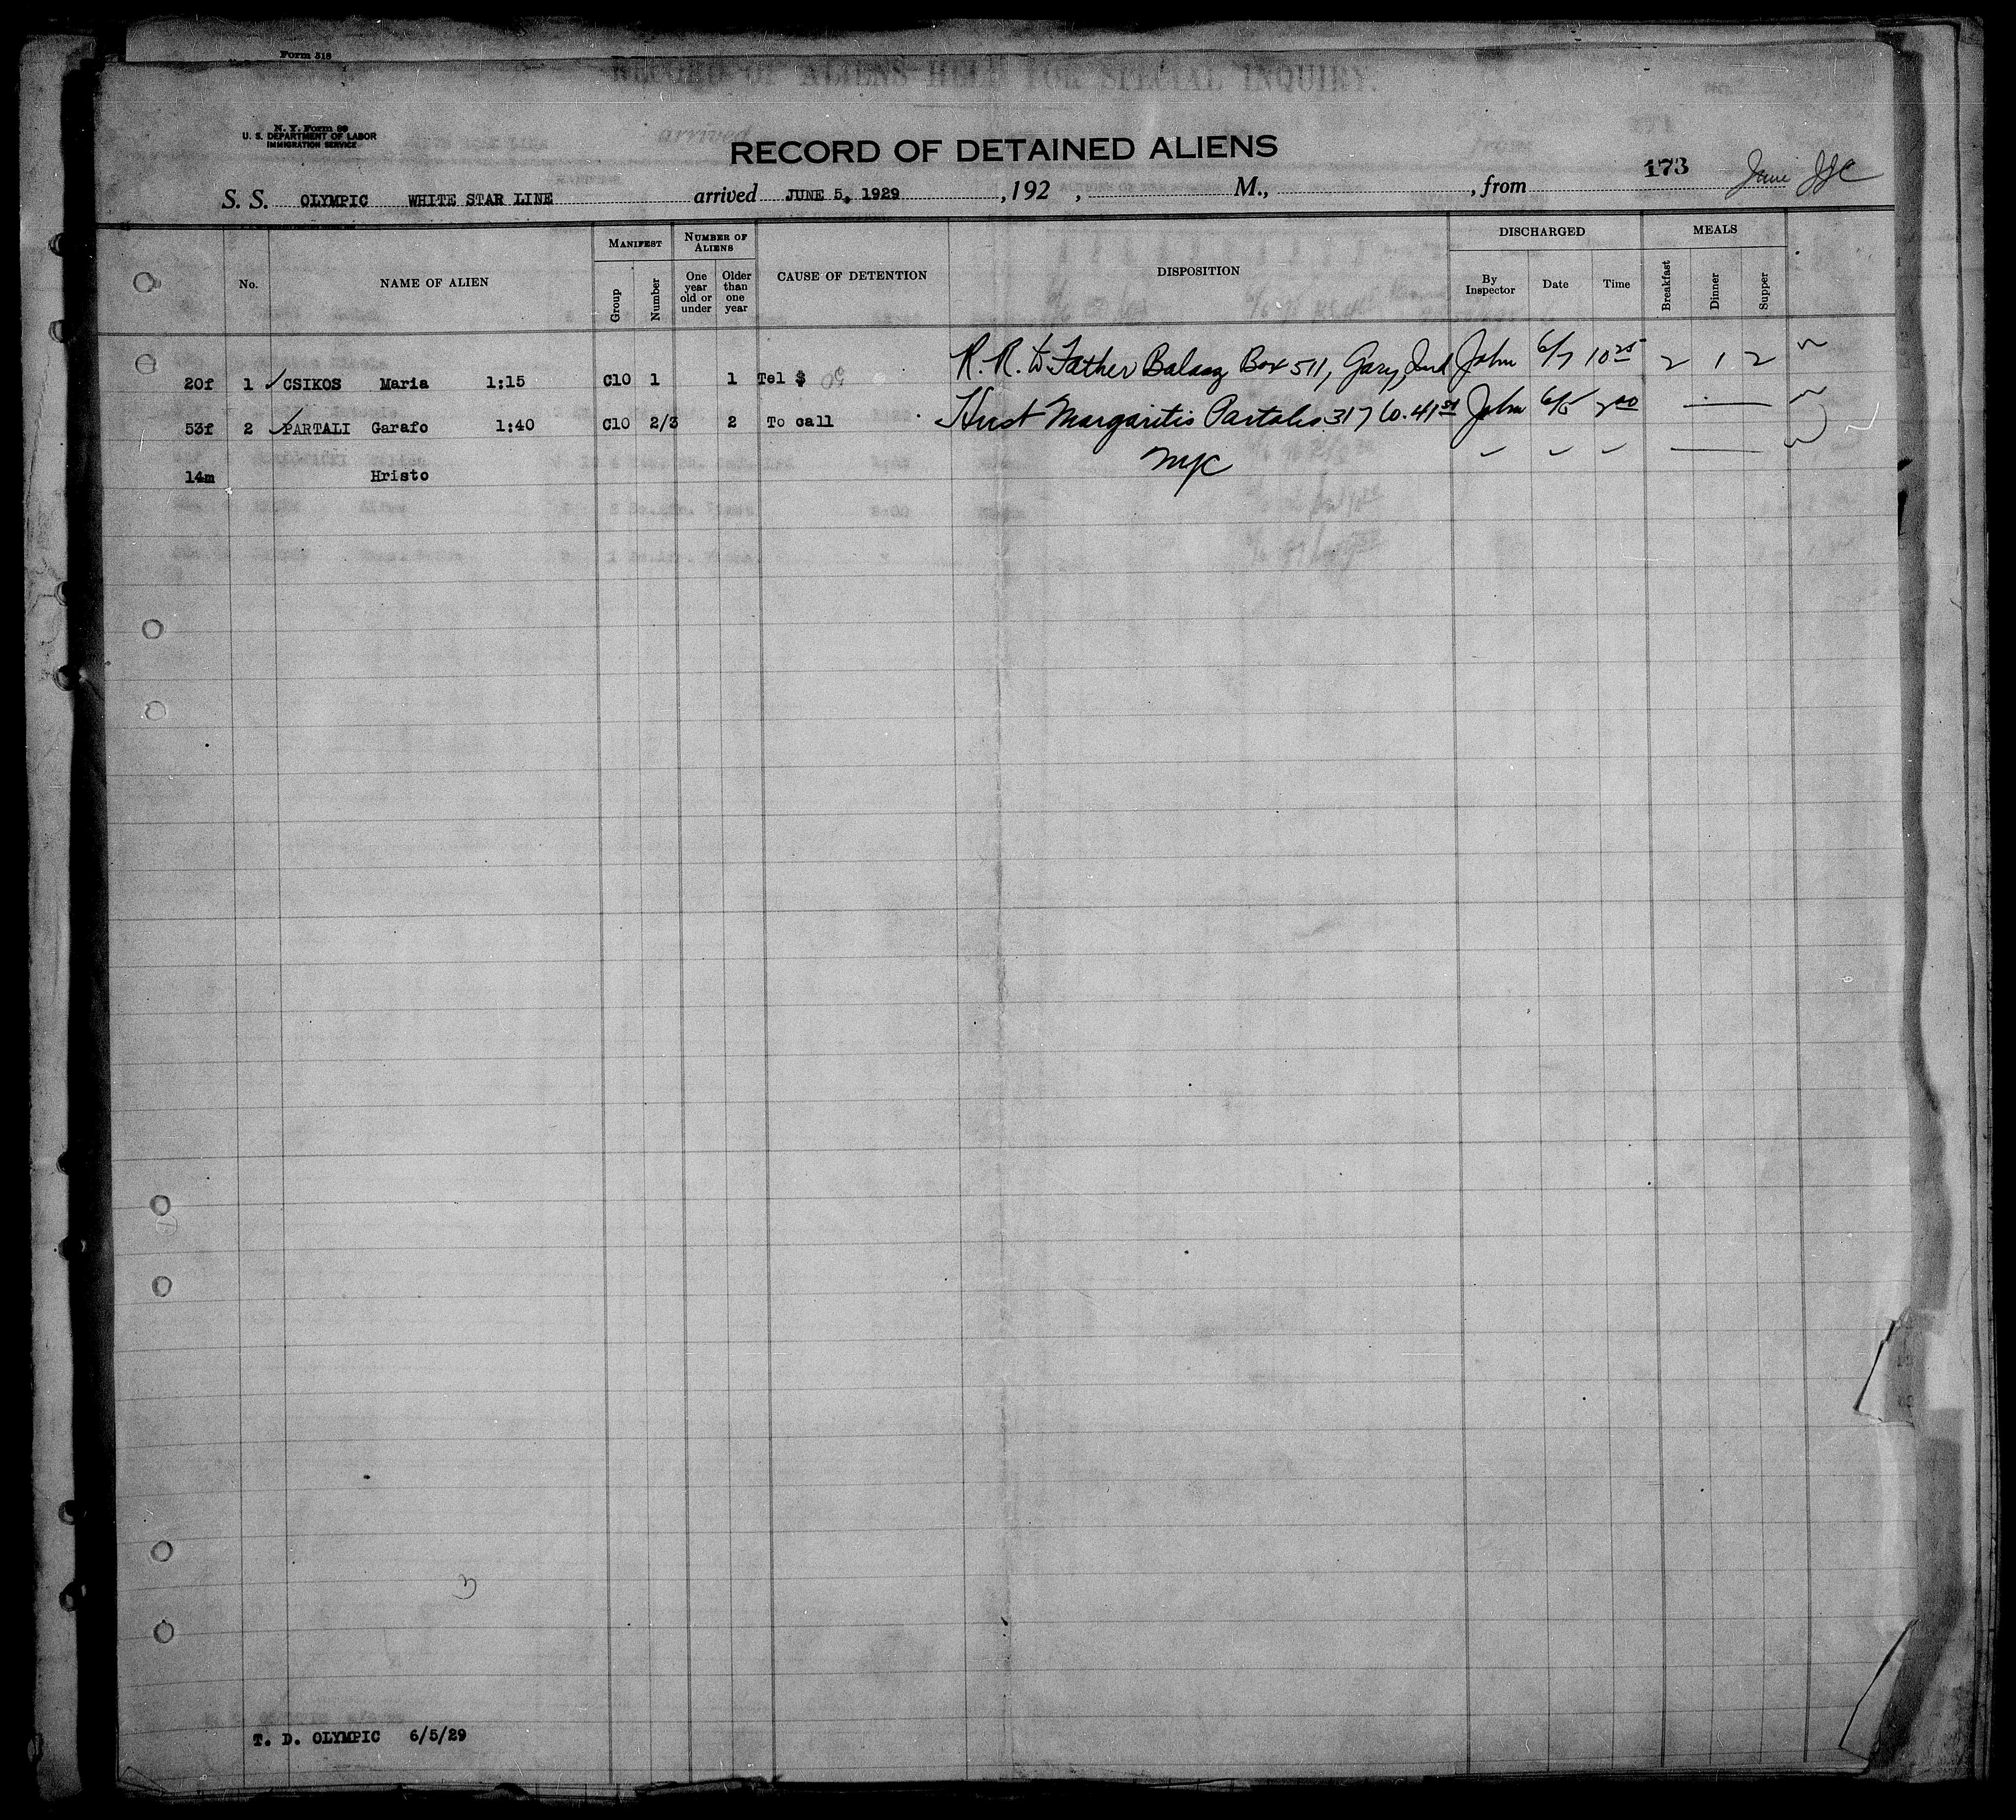 Form 318
RECORD OF ALIENS HELD FOR SPECIAL INQUIRY.
N. Y. Form 89
U. S. DEPARTMENT OF LABOR
IMMIGRATION SERVICE
RECORD OF DETAINED ALIENS
173
S. S. OLYMPIC WHITE STAR LINE arrived JUNE 5, 1929, 192 , M., , from
No. NAME OF ALIEN MANIFEST Group Number NUMBER OF ALIENS One year old or under Older than one year CAUSE OF DETENTION DISPOSITION DISCHARGED By Inspector Date Time MEALS Breakfast Dinner Supper
20f 1 ✓ CSIKOS Maria 1:15 C10 1 1 Tel $ R.R. to Father Balazg Box 511, Gary, Ind John 6/7 10 25 2 1 2
53f 2 ✓ PARTALI Garafo 1:40 C10 2/3 2 To call Hust Margaritis Partalis 317 W. 41st John 6/5 2 00
14m Hristo NYC
3
T. D. OLYMPIC 6/5/29